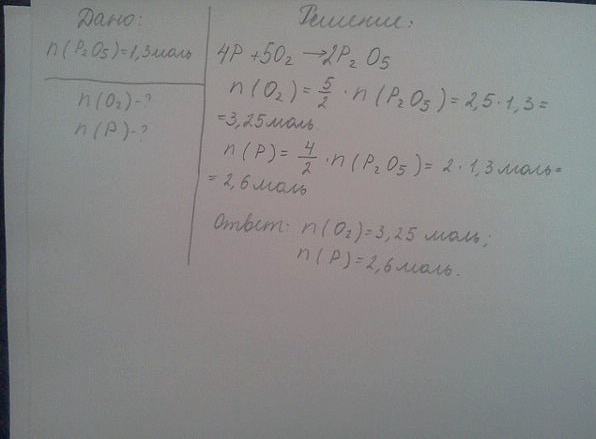 Дано:
n(P₂O₅)=1,3моль
n(O₂)-?
n(P)-?
Решение:
4P+5O₂→2P₂O₅
n(O₂)=5/2·n(P₂O₅)=2,5·1,3=
=3,25моль
n(P)=4/2·n(P₂O₅)=2·1,3моль=
=2,6моль
Ответ: n(O₂)=3,25 моль;
n(P)=2,6моль.